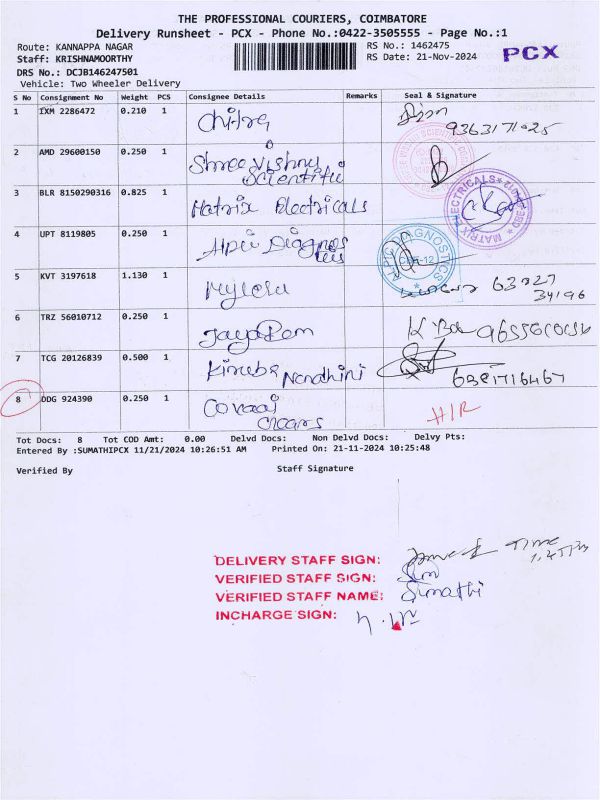 THE PROFESSIONAL COURIERS, COIMBATORE
Delivery Runsheet - PCX - Phone No.:0422-3505555 - Page No.:1
Route: KANNAPPA NAGAR
RS No.: 1462475
Staff: KRISHNAMOORTHY
RS Date: 21-Nov-2024
PCX
DRS No.: DCJB146247501
Vehicle: Two Wheeler Delivery
S No Consignment No Weight PCS Consignee Details Remarks Seal & Signature
1 IXM 2286472 0.210 1 Chitra
9363171025
2 AMD 29600150 0.250 1 Shree Vishnu
Scientific
3 BLR 8150290316 0.825 1 Matrix Electricals
MATRIX ELECTRICALS
4 UPT 8119805 0.250 1
DIAGNOSTICS
CBE-12
5 KVT 3197618 1.130 1
63827
34196
6 TRZ 56010712 0.250 1 Jayaram
7 TCG 20126839 0.500 1 Kiruba Nandhini
8 DDG 924390 0.250 1 Covaai
Tot Docs: 8 Tot COD Amt: 0.00 Delvd Docs: Non Delvd Docs: Delvy Pts:
Entered By :SUMATHIPCX 11/21/2024 10:26:51 AM Printed On: 21-11-2024 10:25:48
Verified By Staff Signature
DELIVERY STAFF SIGN: Time
VERIFIED STAFF SIGN:
VERIFIED STAFF NAME: Sumathi
INCHARGE SIGN: